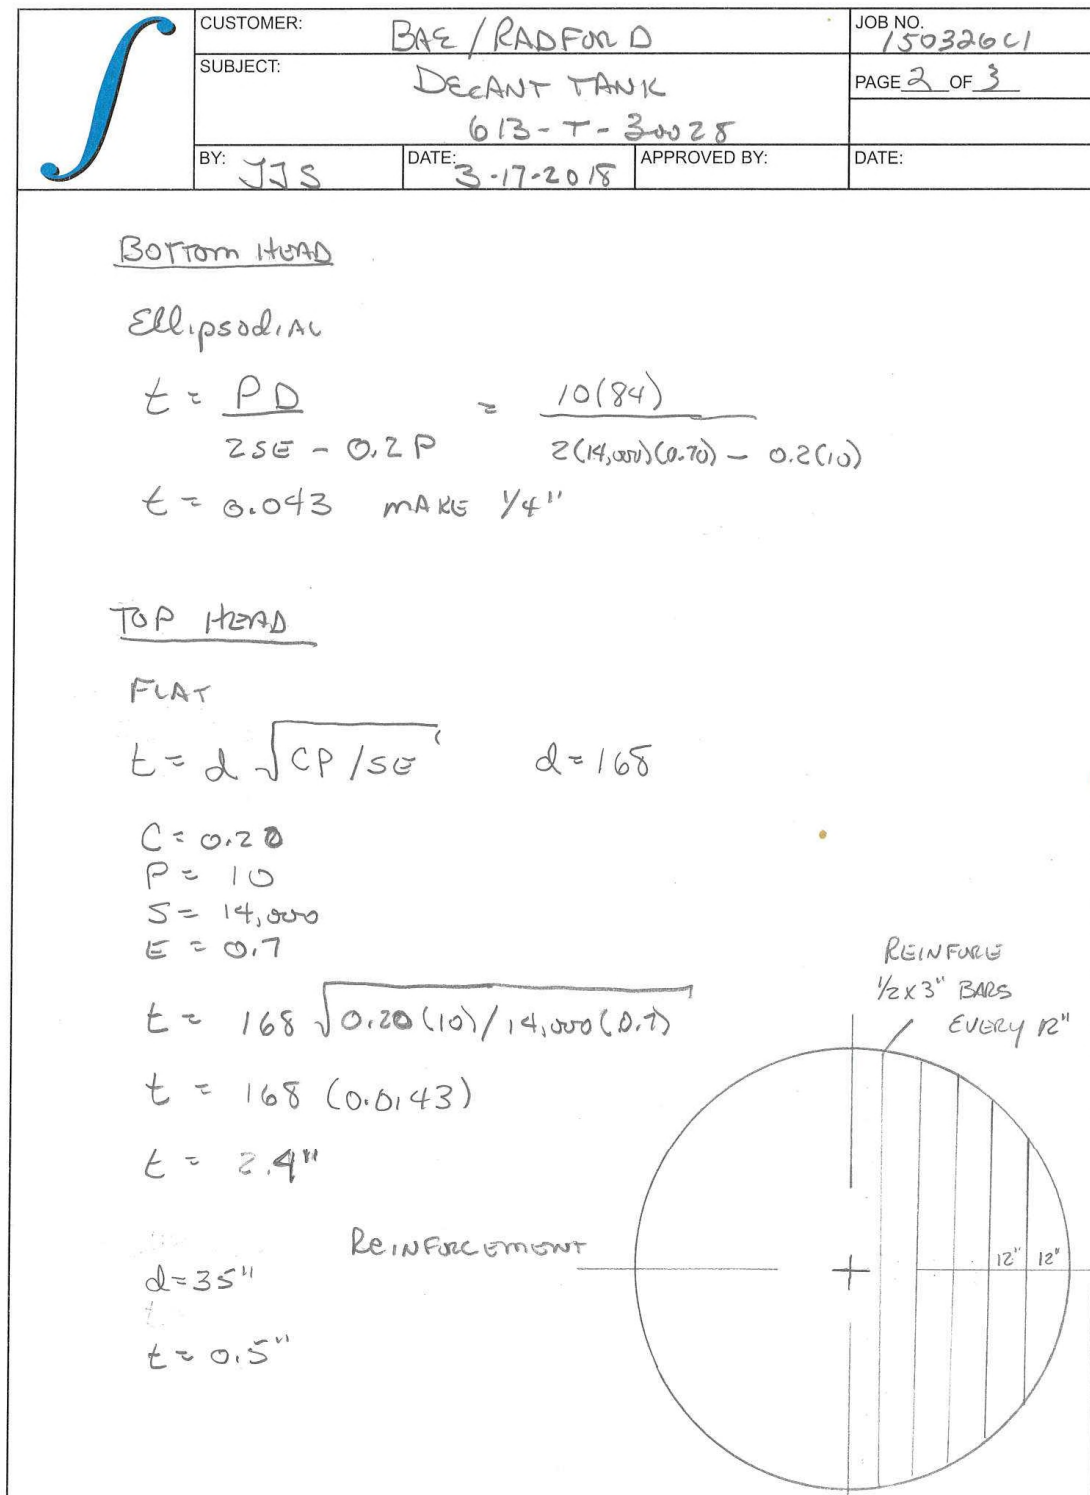 CUSTOMER: BAE / RADFORD
JOB NO. 150326C1
SUBJECT: DECANT TANK
613-T-30028
PAGE 2 OF 3
BY: JJS
DATE: 3-17-2018
APPROVED BY:
DATE:
BOTTOM HEAD
EllipsodiAL
t = PD / 2SE - 0.2P = 10(84) / 2(14,000)(0.70) - 0.2(10)
t = 0.043 MAKE 1/4"
TOP HEAD
FLAT
t = d √CP/SE d = 168
C = 0.20
P = 10
S = 14,000
E = 0.7
t = 168 √0.20(10)/14,000(0.7)
t = 168 (0.0143)
t = 2.4"
REINFORCEMENT
d = 35"
t = 0.5"
REINFORE
1/2 x 3" BARS
EVERY 12"
12" 12"